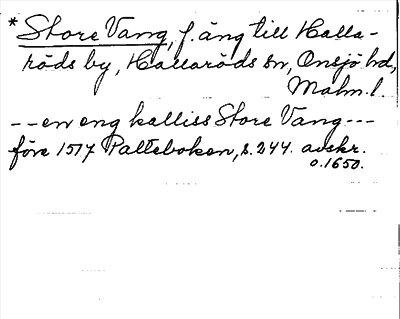 * Store Vang, f. äng till Halla-
röds by, Hallaröds sn, Onsjö hd,
Malm. l.
-- en eng kalliss Store Vang ---
före 1517 Palteboken, s. 244. avskr.
o. 1650.